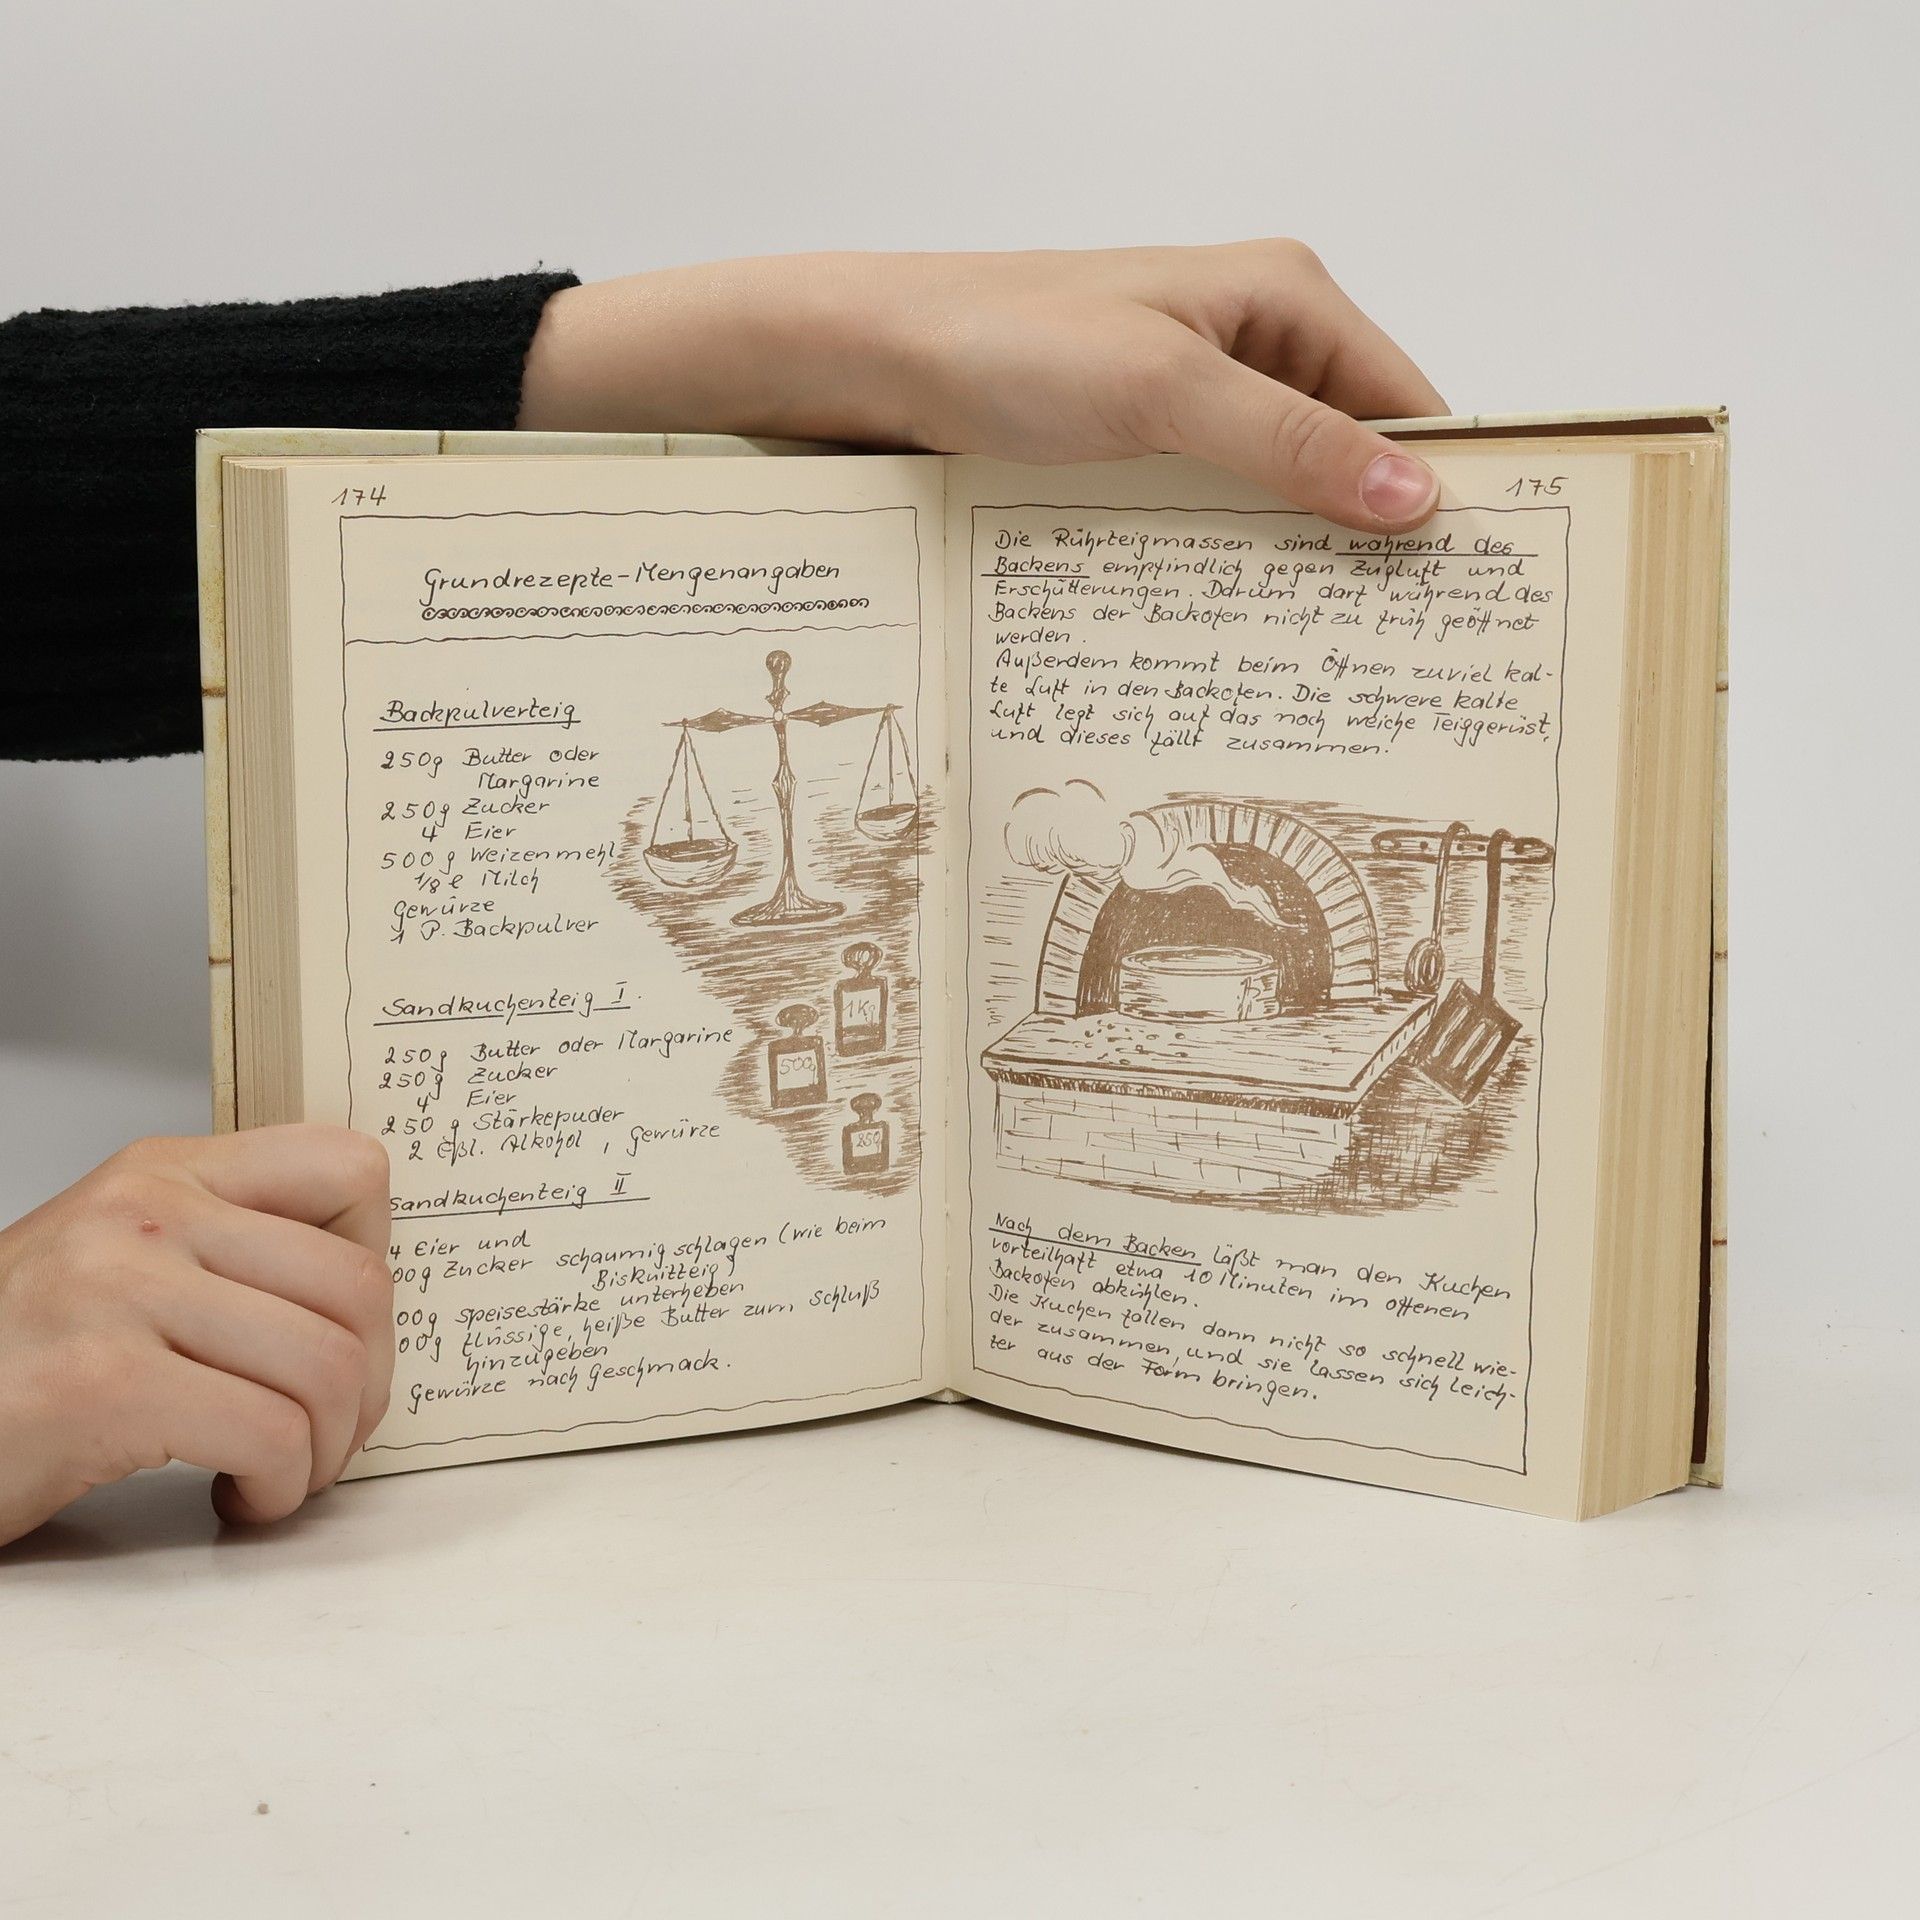 174
Grundrezepte-Mengenangaben
Backpulverteig
250g Butter oder
Margarine
250g Zucker
4 Eier
500 g Weizenmehl
1/8 l Milch
Gewürze
1 P. Backpulver
Sandkuchenteig I.
250g Butter oder Margarine
250g Zucker
4 Eier
250 g Stärkepuder
2 Eßl. Alkohol, Gewürze
Sandkuchenteig II
4 Eier und
00g Zucker schaumig schlagen (wie beim
Biskuitteig)
00g Speisestärke unterheben
00g flüssige, heiße Butter zum Schluß
hinzugeben
Gewürze nach Geschmack.
1Kg
500g
250
175
Die Rührteigmassen sind während des
Backens empfindlich gegen Zugluft und
Erschütterungen. Darum darf während des
Backens der Backofen nicht zu früh geöffnet
werden.
Außerdem kommt beim Öffnen zuviel kal-
te Luft in den Backofen. Die schwere kalte
Luft legt sich auf das noch weiche Teiggerüst,
und dieses fällt zusammen.
Nach dem Backen läßt man den Kuchen
vorteilhaft etwa 10 Minuten im offenen
Backofen abkühlen.
Die Kuchen fallen dann nicht so schnell wie-
der zusammen, und sie lassen sich leich-
ter aus der Form bringen.